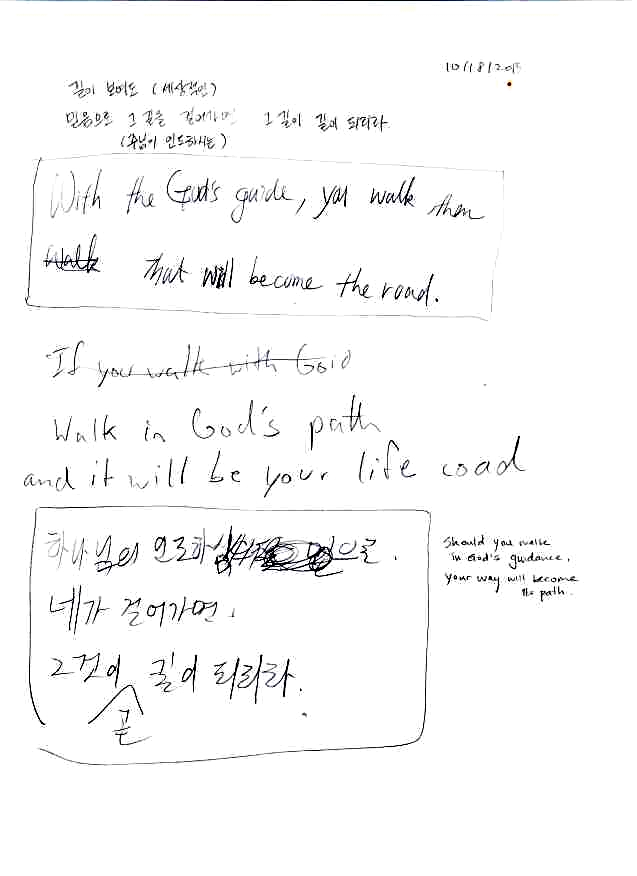 10/18/2015
길이 보여도 (세상적인)
믿음으로 그 길을 걸어가면 그 길이 길이 되리라.
(주님이 인도하시는)
With the God's guide, you walk then
walk that will become the road.
If you walk with God
Walk in God's path
and it will be your life coad
하나님의 인도하심 으로.
네가 걸어가면.
그것이 길이 되리라.
곧
Should you walk
in God's guidance,
your way will become
the path.